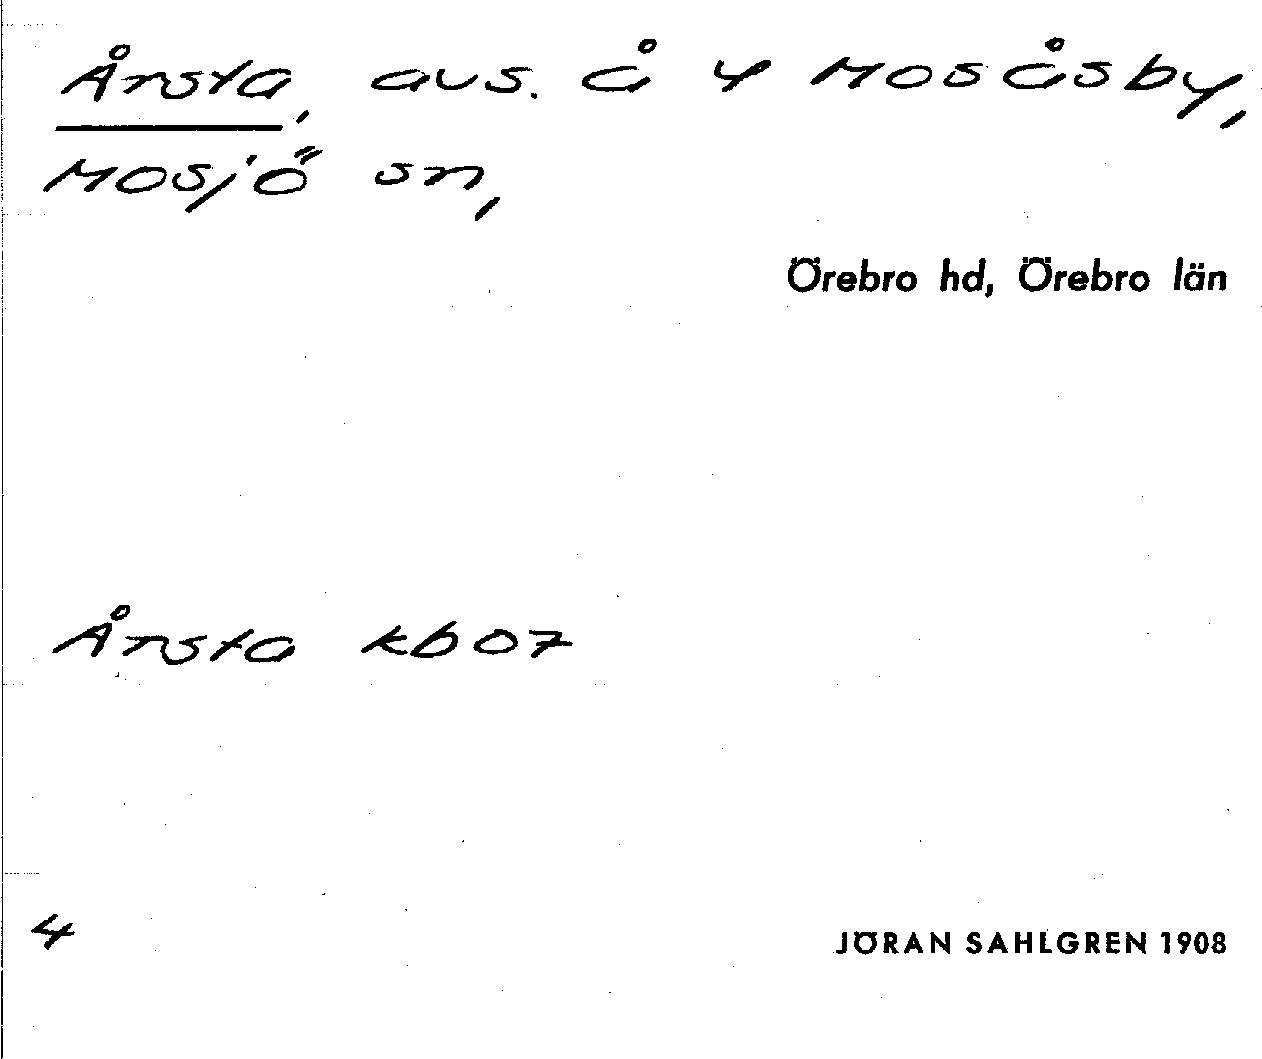 Årsta, avs. å 4 Mosåsby,
Mosjö sn,
Örebro hd, Örebro län
Årsta kb 07
4
JÖRAN SAHLGREN 1908